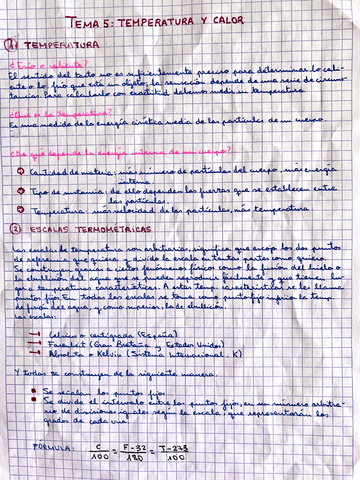 TEMA 5: TEMPERATURA Y CALOR
1) TEMPERATURA
¿Frío o caliente?
El sentido del tacto no es suficientemente preciso para determinar lo cali-
ente o lo frío que está un objeto, la sensación depende de una serie de circuns-
tancias. Para calcularlo con exactitud debemos medir su temperatura.
¿Qué es la temperatura?
Es una medida de la energía cinética media de las partículas de un cuerpo.
¿De qué depende la energía interna de un cuerpo?
Cantidad de materia: más número de partículas del cuerpo, más energía
interna
Tipo de sustancia: de ello dependen las fuerzas que se establecen entre
las partículas.
Temperatura: más velocidad de las partículas, más temperatura
2) ESCALAS TERMOMÉTRICAS
Las escalas de temperatura son arbitrarias, significa que escojo los dos puntos
de referencia que quiera y divido la escala en tantas partes como quiera.
Se construyen gracias a ciertos fenómenos físicos como la fusión del hielo o
la ebullición del agua que se pueden reproducir fácilmente y que tienen lu-
gar a temperaturas características. A estas temp. características se les llama
puntos fijos. En todas las escalas se toma como punto fijo inferior la temp.
de fusión del agua, y como superior, la de ebullición.
Las escalas:
Celsius o centígrada (España)
Farenheit (Gran Bretaña y Estados Unidos)
Absoluta o Kelvin (Sistema Internacional, K)
Y todas se construyen de la siguiente manera:
Se señalan los puntos fijos
Se divide el intervalo entre los puntos fijos, en un número arbitra-
rio de divisiones iguales según la escala, que representarán los
grados de cada una.
FÓRMULA: C/100 = F-32/180 = T-273/100